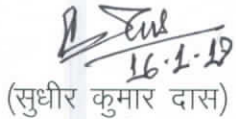 16.1.19
(सुधीर कुमार दास)